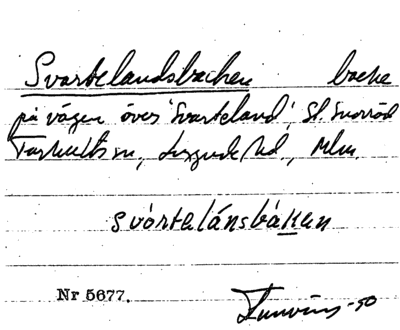 Svartelandsbacken backe
på vägen över 'Svarteland', St. Svenröd
Farhults sn, Luggude hd., Mlm.
svǻrtelánsbákken
Nr 5677.